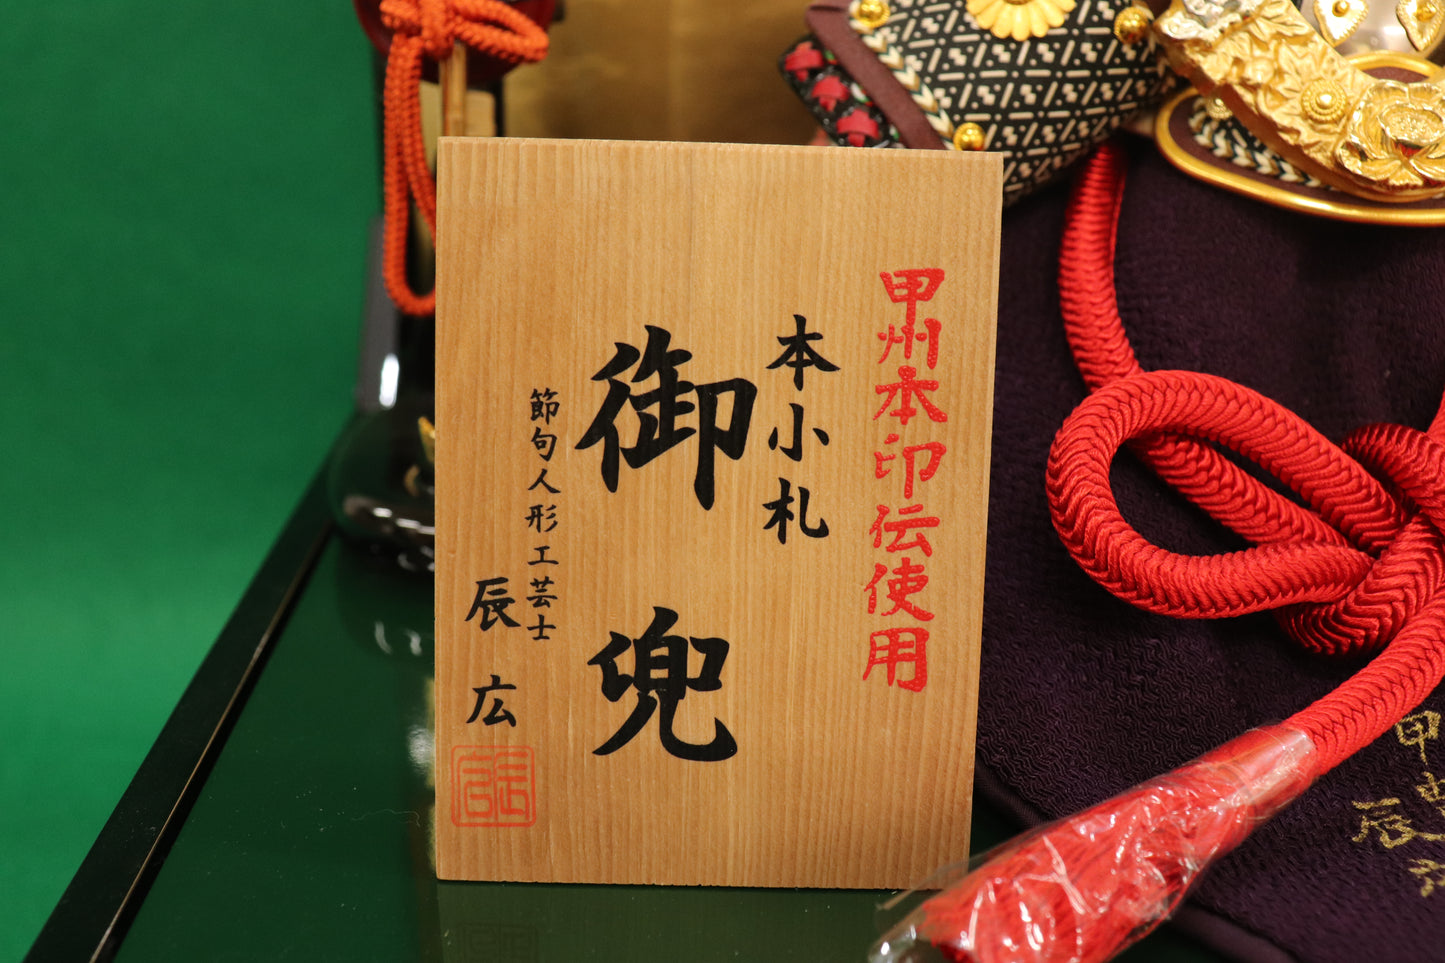 甲州本印伝使用
本小札
御兜
節句人形工芸士
辰広
甲
辰